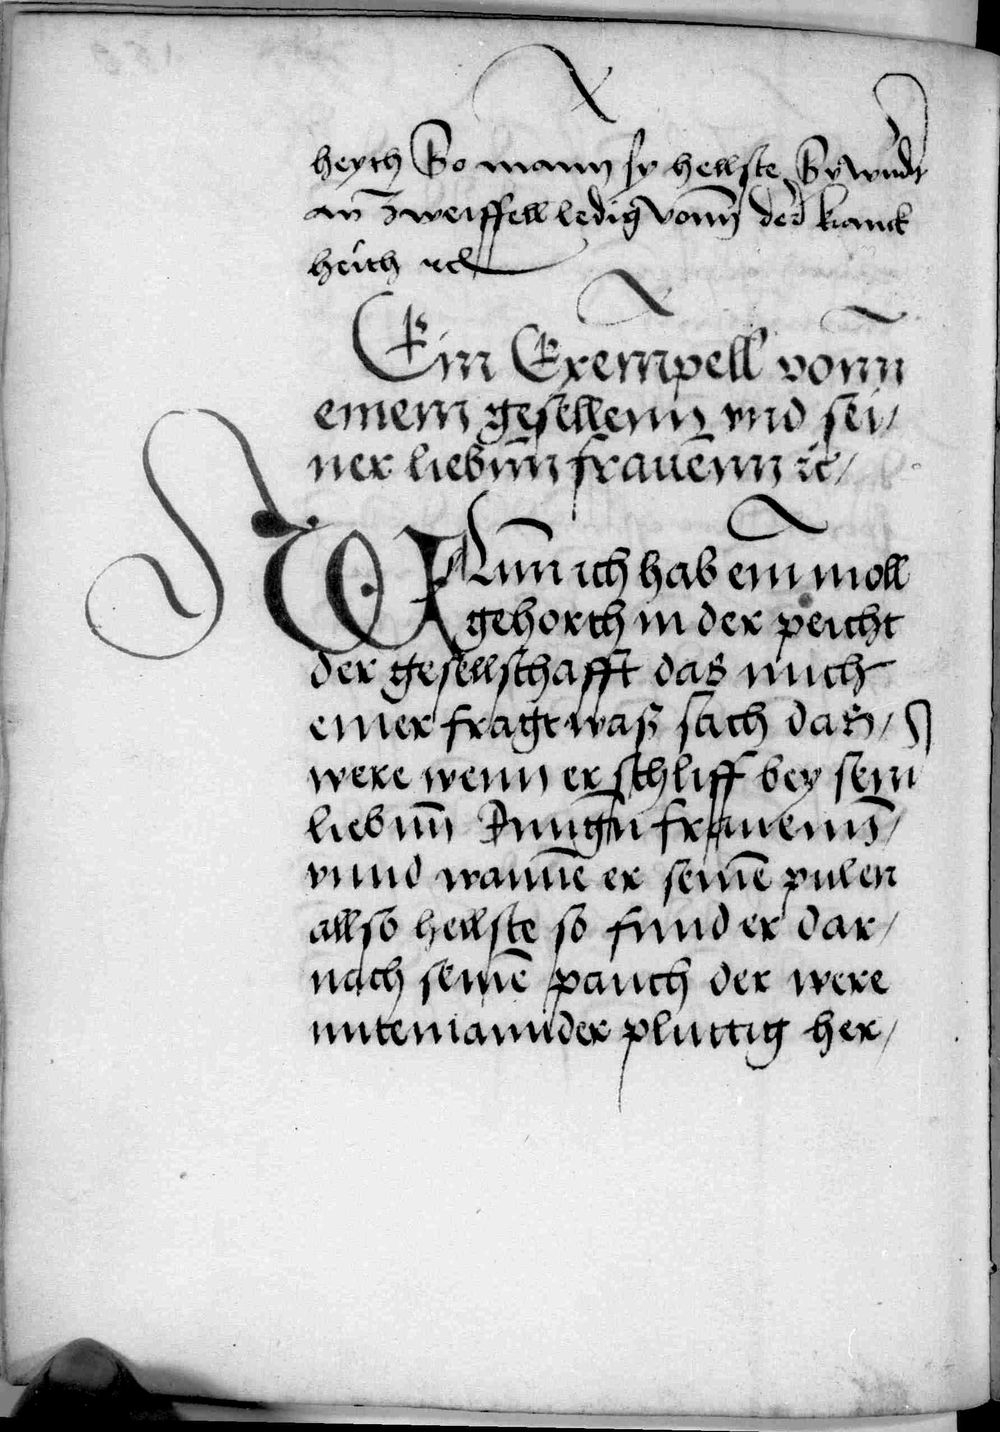 heyth So mann sy hellste Sy wirdt
an zweiffell ledig vonn der kranck
heith etc
Ein Exempell vonn
einem gesellenn vnd sei/
ner liebnn frauenn etc/
Wann ich hab ein moll
gehorth in der peicht
der gesellschafft das mich
einer fragt waß sach daß/
were wenn er schlieff bey sein
liebnn Jungn frauenn/
vnnd wanne er seine pulen
allso hellste so fund er dar/
nach seine pauch der were
miteinannder pluttig her/